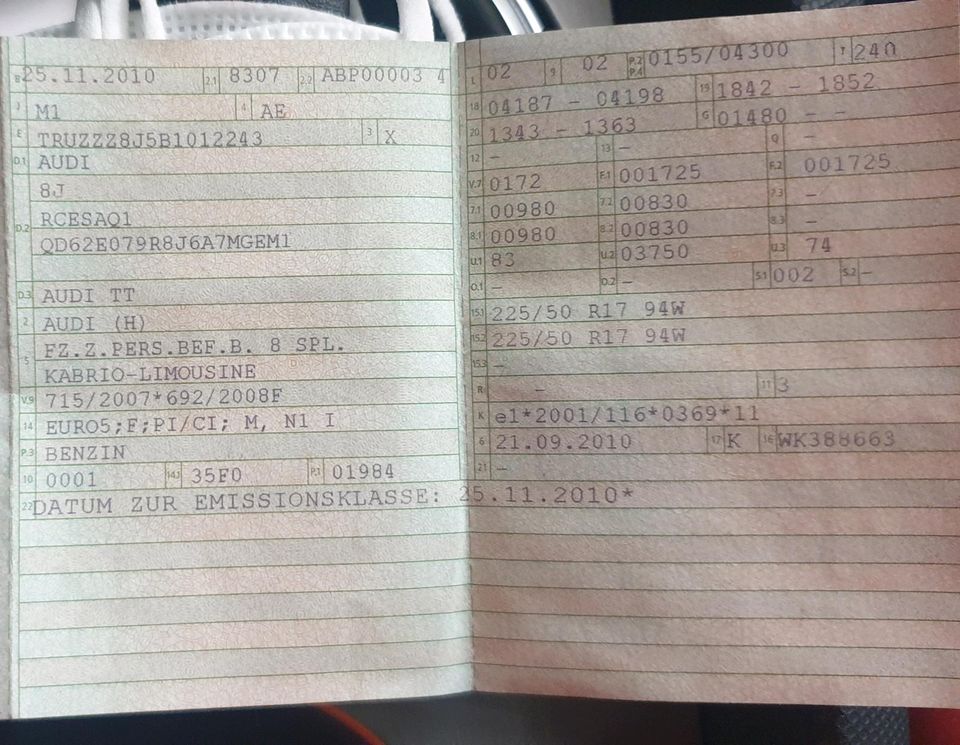 B 25.11.2010 2.1 8307 2.2 ABP00003 4
J M1 4 AE
E TRUZZZ8J5B1012243 3 X
D.1 AUDI
8J
D.2 RCESAQ1
QD62E079R8J6A7MGEM1
D.3 AUDI TT
2 AUDI (H)
5 FZ.Z.PERS.BEF.B. 8 SPL.
KABRIO-LIMOUSINE
V.9 715/2007*692/2008F
14 EURO5;F;PI/CI; M, N1 I
P.3 BENZIN
10 0001 14.1 35F0 P.1 01984
22 DATUM ZUR EMISSIONSKLASSE: 25.11.2010*
L 02 9 02 P.2 P.4 0155/04300 T 240
18 04187 - 04198 19 1842 - 1852
20 1343 - 1363 G 01480 - -
12 - 13 - Q -
V.7 0172 F.1 001725 F.2 001725
7.1 00980 7.2 00830 7.3 -
8.1 00980 8.2 00830 8.3 -
U.1 83 U.2 03750 U.3 74
O.1 - O.2 - S.1 002 S.2 -
15.1 225/50 R17 94W
15.2 225/50 R17 94W
15.3 -
R - 11 3
K e1*2001/116*0369*11
6 21.09.2010 17 K 16 WK388663
21 -